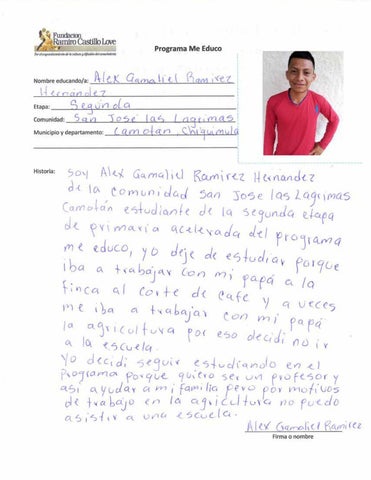 Fundacion
Ramiro Castillo Love
Programa Me Educo
Nombre educando/a: Alex Gamaliel Ramirez
Hernández
Etapa: Segunda
Comunidad: San Jose las Lagrimas
Municipio y departamento: Camotan Chiquimula
Historia: soy Alex Gamaliel Ramirez Hernandez
de la comunidad San Jose las Lagrimas
Camotán estudiante de la segunda etapa
de primaria acelerada del programa
me educo, yo deje de estudiar porque
iba a trabajar con mi papá a la
finca al corte de cafe y a veces
me iba a trabajar con mi papá
la agricultura por eso decidi no ir
a la escuela.
Yo decidi seguir estudiando en el
Programa porque quiero ser un profesor y
asi ayudar a mi familia pero por motivos
de trabajo en la agricultura no puedo
asistir a una escuela.
Alex Gamaliel Ramirez
Firma o nombre